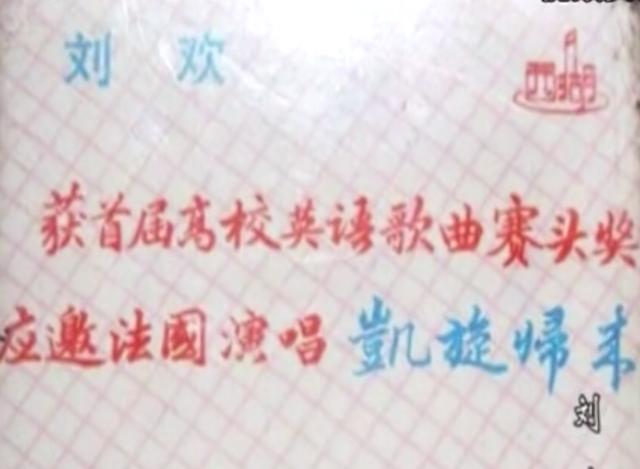 刘 欢
获首届高校英语歌曲赛头奖
应邀法國演唱 凱旋归来
刘